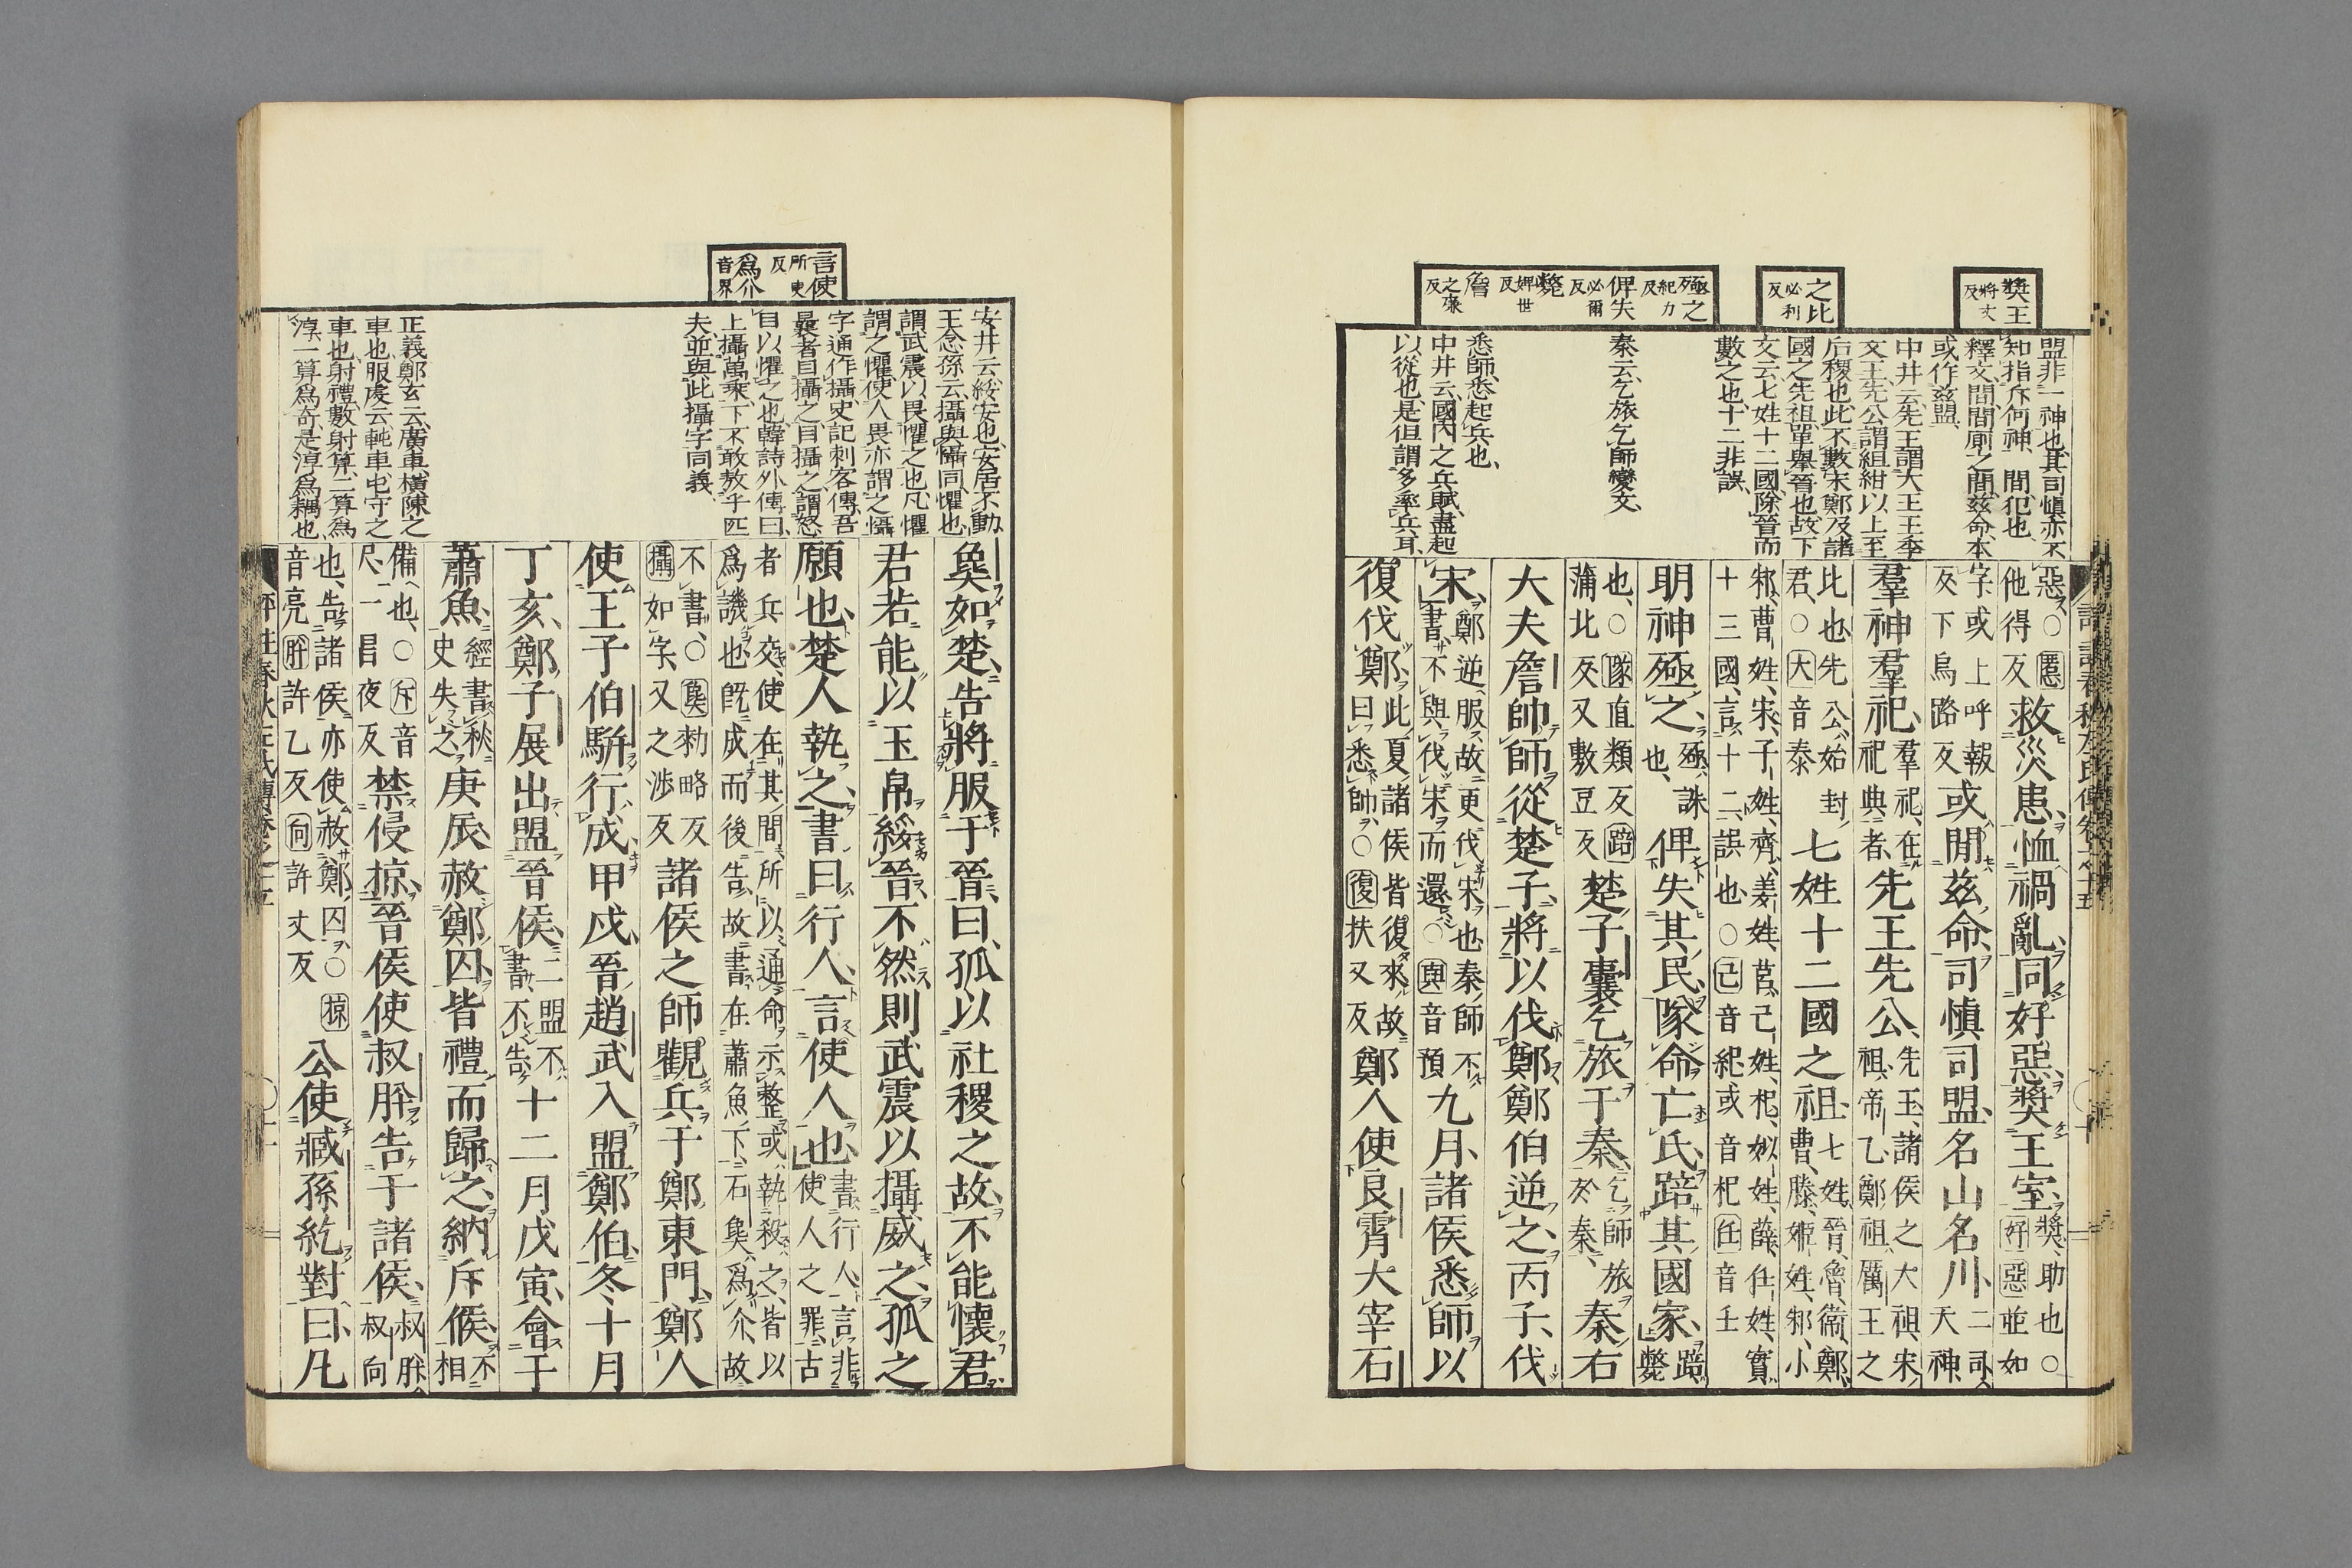 獎王
將丈反
之比
必利反
殛之
紀力反
俾失
必爾反
斃
婢世反
詹
之廉反
盟非一神也、其司愼亦不
知指斥何神、間、犯也、
釋文、間、間厠之間、茲命、本
或作茲盟、
中井云、先王謂大王王季
文王、先公謂組紺以上至
后稷也、此不數宋鄭及諸
國之先祖、單擧晉也、故下
文云七姓十二國、除晉而
數之也、十二非誤、
秦云、乞旅、乞師變文、
悉師、悉起兵也、
中井云、國內之兵賦盡起
以從也、是但謂多率兵耳、
惡、○慝他得反救災患、恤禍亂、同好惡、奬王室、奬、助也、○好惡並如
字或上呼報反下烏路反或閒茲命、司愼司盟、名山名川、二司、天神、
羣神羣祀、羣祀、在祀典者、先王先公、先王、諸侯之大祖、宋祖、帝乙、鄭祖、厲王之
比也、先公、始封君、○大音泰七姓十二國之祖、七姓、晉、魯、衞、鄭、曹、滕、姬姓、邾、小
邾、曹姓、宋、子姓、齊、姜姓、莒、己姓、杞、姒姓、薛、任姓、實十三國、言十二、誤也、○己音紀或音杞任音壬
明神殛之、殛、誅也、俾失其民、隊命亡氏、踣其國家、踣、斃
也、○隊直類反踣蒲北反又敷豆反楚子囊乞旅于秦、乞師旅於秦、秦右
大夫詹帥師從楚子、將以伐鄭、鄭伯逆之、丙子、伐
宋、鄭逆服、故更伐宋也、秦師不書、不與伐宋而還、○與音預九月、諸侯悉師以
復伐鄭、此夏諸侯皆復來、故曰悉師、○復扶又反鄭人使良霄大宰石
言使
所吏反
爲介
音界
安井云、綏、安也、安居不動、
王念孫云、攝與懾同、懼也、
謂武震以畏懼之也、凡懼
謂之懼、使人畏亦謂之懾、
字通作攝、史記刺客傳、吾
曩者目攝之、目攝之、謂怒
目以懼之也、韓詩外傳曰、
上攝萬乘、下不敢敖乎匹
夫、竝與此攝字同義、
正義、鄭玄云、廣車、橫陳之
車也、服虔云、軘車、屯守之
車也、射禮、數射算、二算爲
淳、一算爲奇、是淳爲耦也、
㚟如楚、告將服于晉、曰、孤以社稷之故、不能懷君、
君若能以玉帛綏晉、不然則武震以攝威之、孤之
願也、楚人執之、書曰、行人、言使人也、書行人、言非使人之罪、古
者兵交、使在其間、所以通命示整、或執殺之、皆以爲譏也、旣成而後告、故書在蕭魚下、石㚟爲介、故
不書、○㚟勑略反攝如字、又之涉反諸侯之師觀兵于鄭東門、鄭人
使王子伯騈行成、甲戌、晉趙武入盟鄭伯、冬、十月
丁亥、鄭子展出盟晉侯、二盟不書、不告、十二月戊寅、會于
蕭魚、經書秋、史失之、庚辰、赦鄭囚、皆禮而歸之、納斥候、不相
備也、○斥音尺、一昌夜反禁侵掠、晉侯使叔肸告于諸侯、叔肸、叔向
也、告諸侯、亦使赦鄭囚、○掠音亮肸許乙反向許丈反公使臧孫紇對曰、凡